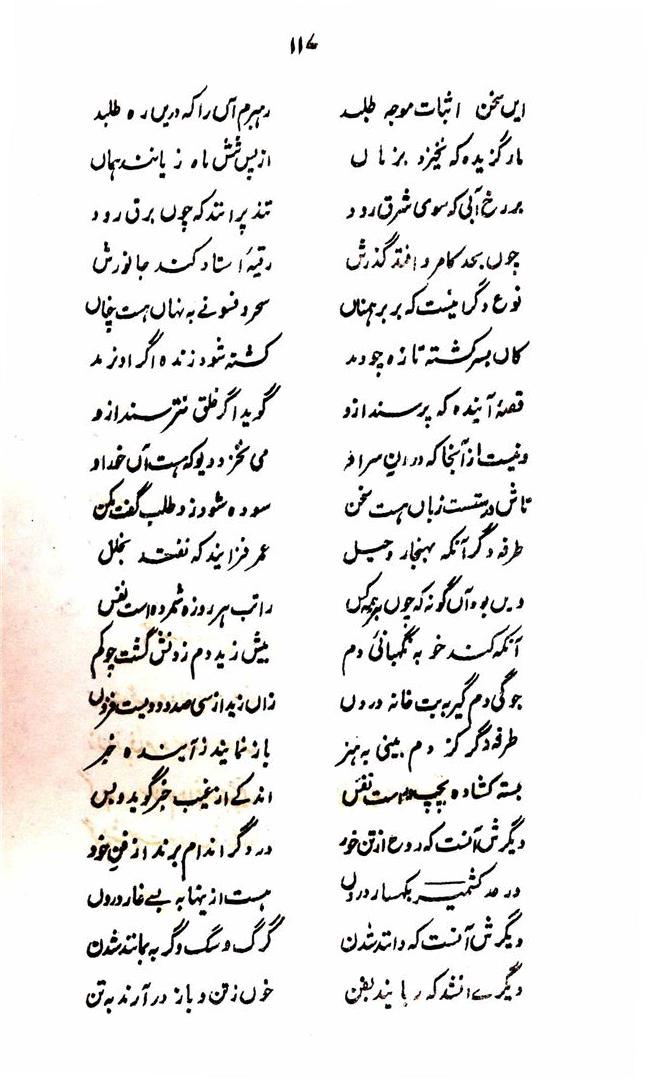 ۱۱۷
ایں سخن اثبات موجہ طلبد رہبرم آں را کہ دریں رہ طلبد
مار گزیدہ کہ نخیزد بزماں از پس شش ماہ زیانند ہماں
بررخ آبی کہ سوی شرق رود تند پرانند کہ چوں برق رود
چوں بحد کامرو افتد گذرش رقیۂ استاد کند جانورش
نوع دگر اینست کہ بر برہمناں سحر و فسونے بہ نہاں ہست چناں
کاں بسر کشتہ تازہ چو دمد کشتہ شود زندہ اگر او نزمد
قصۂ آیندہ کہ پرسند ازو گوید اگر خلق نترسند ازو
ونیست از آنجا کہ در ان سرافـ می نخزد دیو کہ ہست آں خداو
تاش درستست زباں ہست سخن سودہ شود زو طلب گفت مکن
طرفہ دگر آنکہ بہنجار وحیل عمر فزایند کہ نفتد بخلل
ویں بود آں گونہ کہ چوں بر ہمہ کس راتب ہر روزہ شمردہ است نفس
آنکہ کند خو بہ نگہبانئ دم بیش زید دم زدنش گشت چو کم
جوگی دم گیر بہ بت خانہ دروں زاں زید از سی صد و دویست فزوں
طرفہ دگر کز دم بینی بہ ہنر باز نمایند ز آیندہ خبر
بستہ کشادہ بچپ و راست نفس اندکے از غیب خبر گوید و بس
دیگرش آنست کہ روح از تن خود در دگر اندام برند از فن خود
در حد کشمیر بکہسار دروں ہست ازینہا بہ بسے غار دروں
دیگرش آنست کہ دانند شدن گرگ و سگ و گربہ بمانند شدن
دیگرے انشد کہ ربایند بفن خوں ز تن و باز در آرند بہ تن